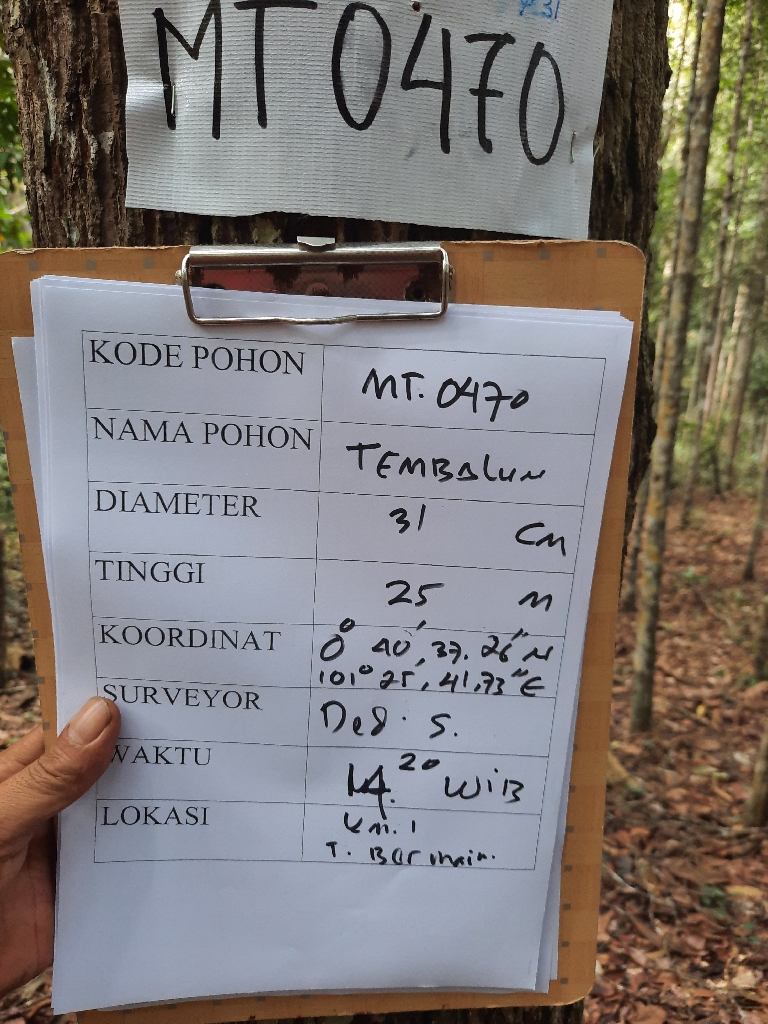 MT 0470
KODE POHON MT. 0470
NAMA POHON TEMBALUN
DIAMETER 31 CM
TINGGI 25 M
KOORDINAT 0° 40', 37.26" N
101° 25, 41,73" E
SURVEYOR Ded. S.
WAKTU 14.20 WIB
LOKASI Km. 1
T. Bermain.